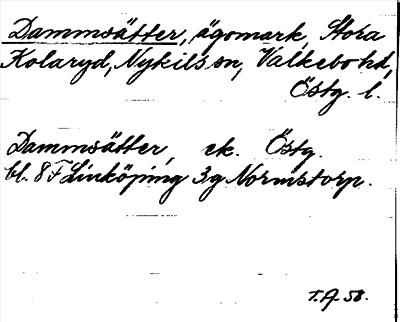 Dammsätter, ägomark, Stora
Kolaryd, Nykils sn, Valkebo hd,
Östg. l.
Dammsätter, ek. Östg.
bl. 8 F Linköping 3g Normstorp.
T.A. 58.